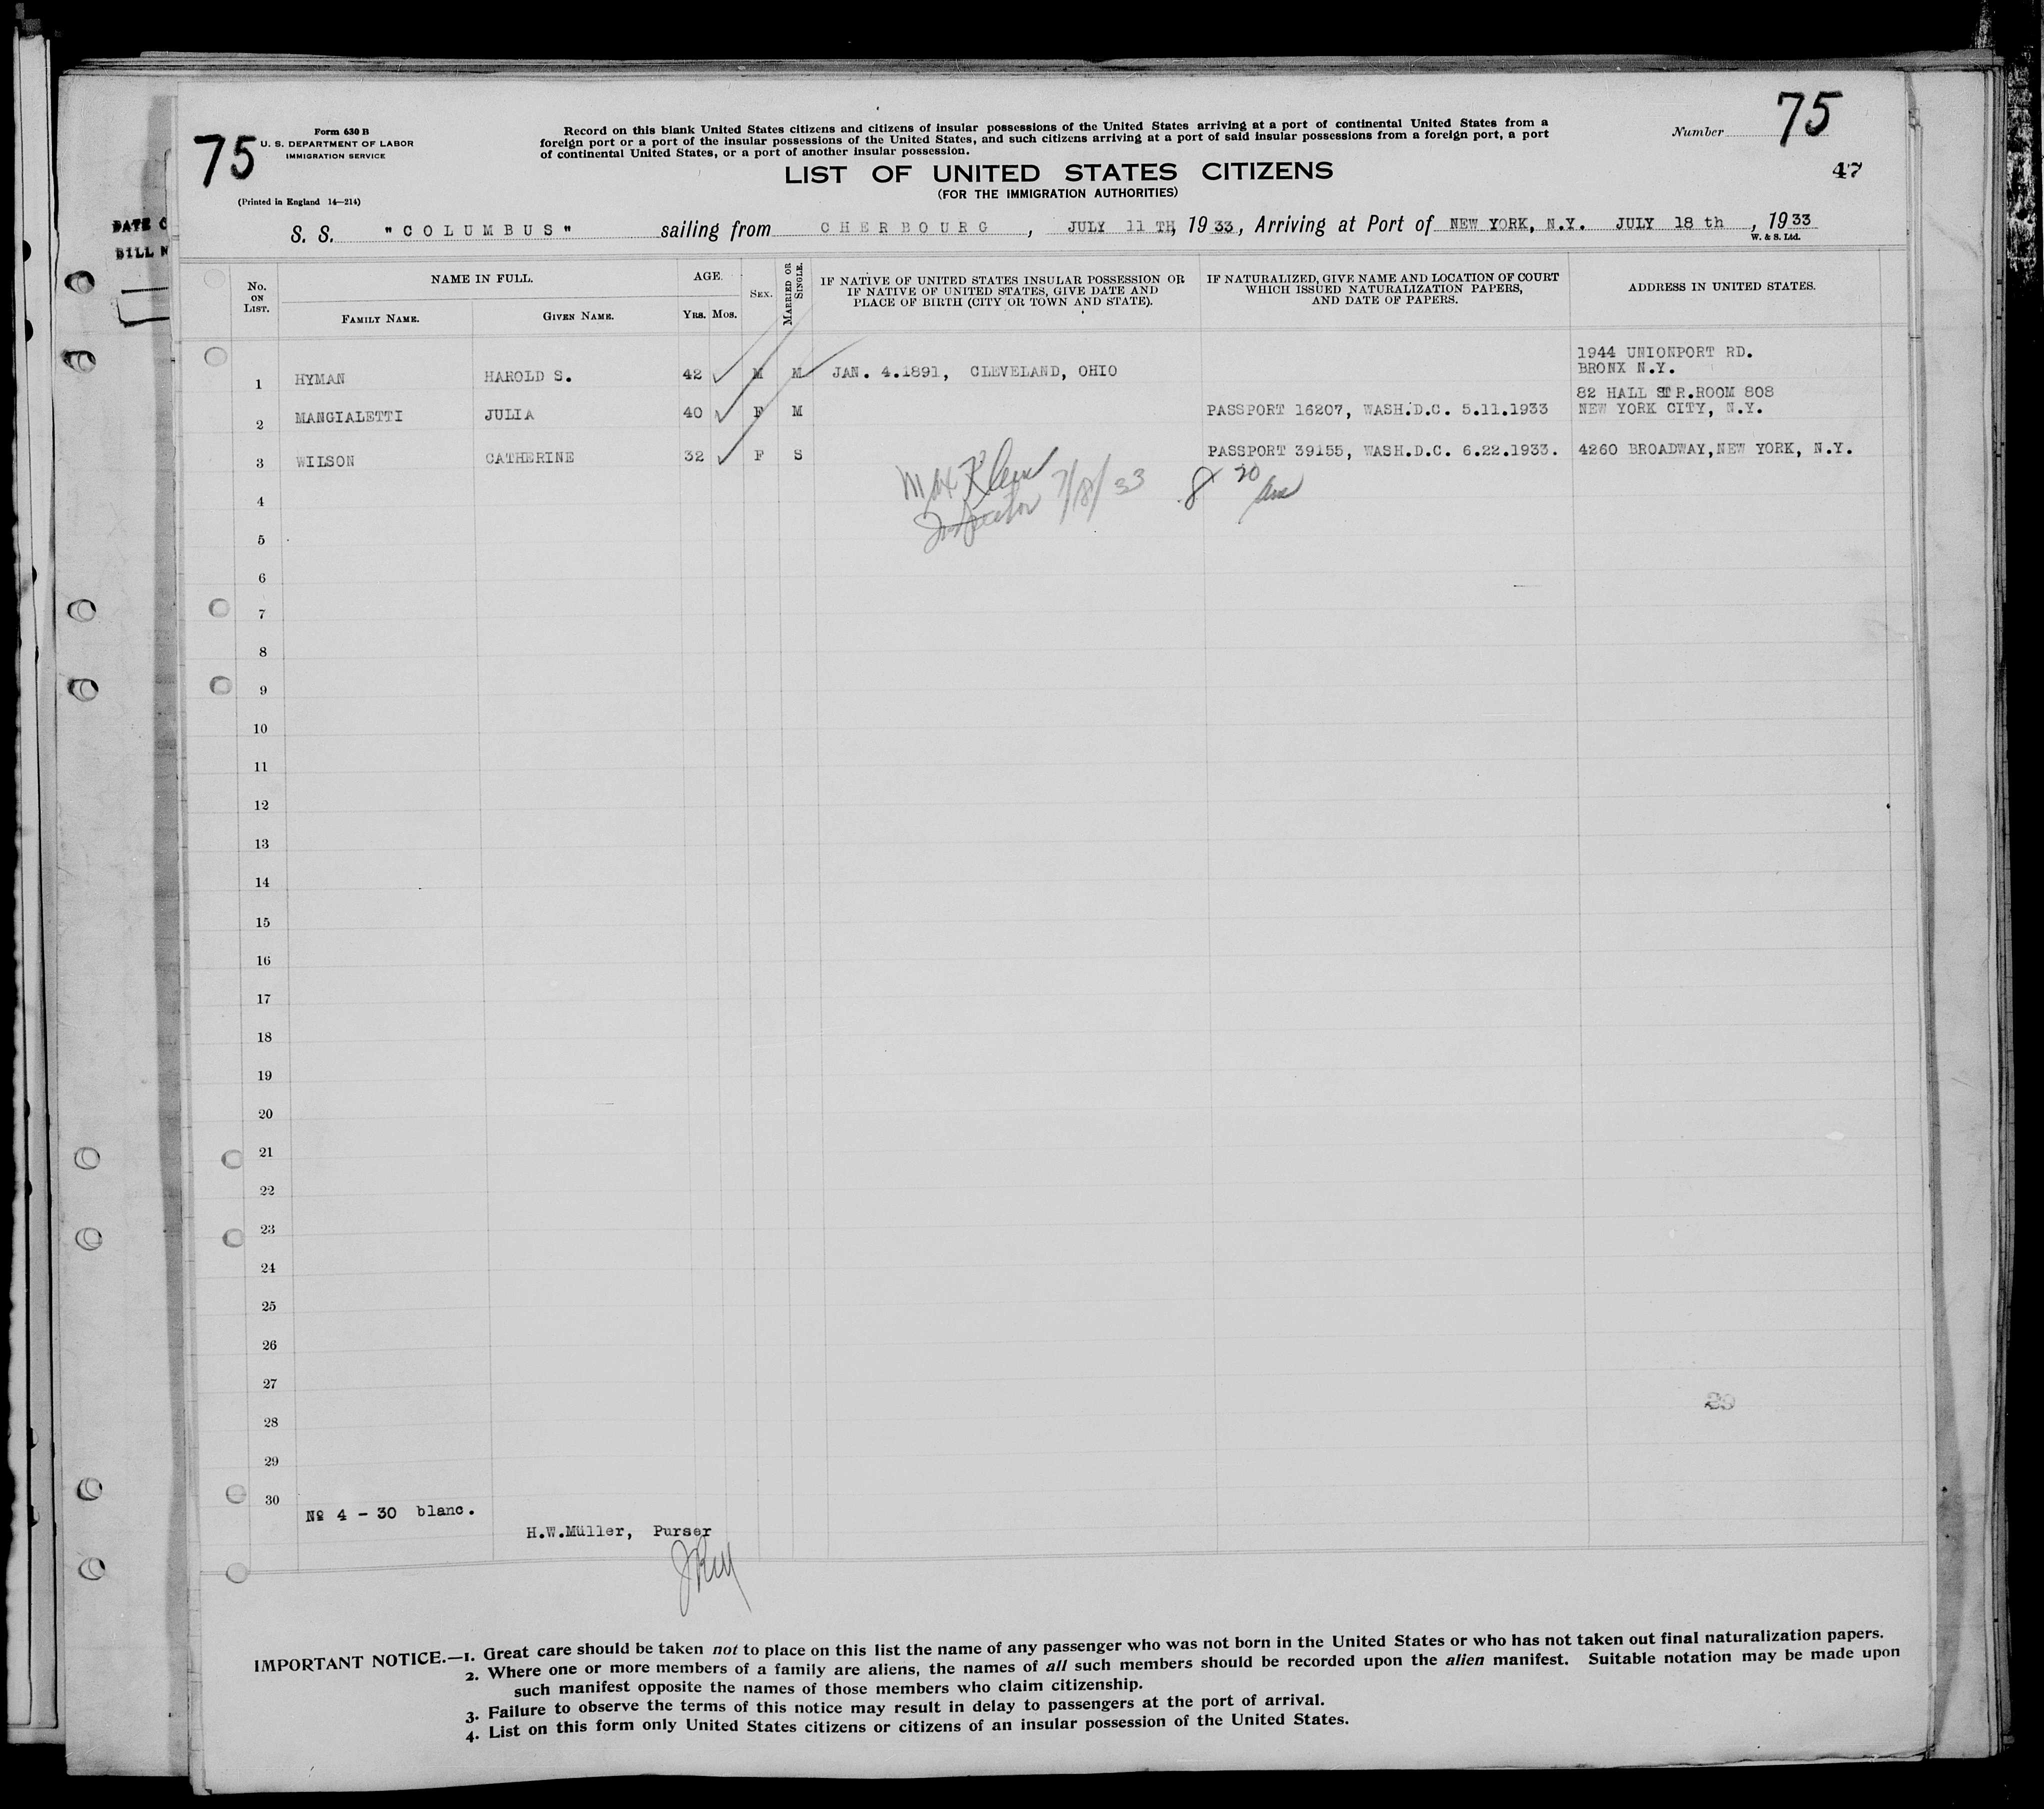 75
Form 630 B
U. S. DEPARTMENT OF LABOR
IMMIGRATION SERVICE
(Printed in England 14—214)
Record on this blank United States citizens and citizens of insular possessions of the United States arriving at a port of continental United States from a
foreign port or a port of the insular possessions of the United States, and such citizens arriving at a port of said insular possessions from a foreign port, a port
of continental United States, or a port of another insular possession.
LIST OF UNITED STATES CITIZENS
(FOR THE IMMIGRATION AUTHORITIES)
Number 75
47
DATE
BILL
S. S. "COLUMBUS" sailing from CHERBOURG, JULY 11 TH, 1933, Arriving at Port of NEW YORK, N.Y. JULY 18 th, 1933
W. & S. Ltd.
No. ON LIST.
NAME IN FULL.
FAMILY NAME. GIVEN NAME.
AGE.
YRS. MOS.
SEX.
MARRIED OR SINGLE.
IF NATIVE OF UNITED STATES INSULAR POSSESSION OR
IF NATIVE OF UNITED STATES, GIVE DATE AND
PLACE OF BIRTH (CITY OR TOWN AND STATE).
IF NATURALIZED, GIVE NAME AND LOCATION OF COURT
WHICH ISSUED NATURALIZATION PAPERS,
AND DATE OF PAPERS.
ADDRESS IN UNITED STATES.
1 HYMAN HAROLD S. 42 M M JAN. 4.1891, CLEVELAND, OHIO 1944 UNIONPORT RD.
BRONX N.Y.
2 MANGIALETTI JULIA 40 F M PASSPORT 16207, WASH.D.C. 5.11.1933 82 HALL STR.ROOM 808
NEW YORK CITY, N.Y.
3 WILSON CATHERINE 32 F S PASSPORT 39155, WASH.D.C. 6.22.1933. 4260 BROADWAY, NEW YORK, N.Y.
Max Klein
Inspector 7/18/33
8 20 am
4
5
6
7
8
9
10
11
12
13
14
15
16
17
18
19
20
21
22
23
24
25
26
27
28
29
30
Nº 4 - 30 blanc.
H.W.Müller, Purser
IMPORTANT NOTICE.—1. Great care should be taken not to place on this list the name of any passenger who was not born in the United States or who has not taken out final naturalization papers.
2. Where one or more members of a family are aliens, the names of all such members should be recorded upon the alien manifest. Suitable notation may be made upon
such manifest opposite the names of those members who claim citizenship.
3. Failure to observe the terms of this notice may result in delay to passengers at the port of arrival.
4. List on this form only United States citizens or citizens of an insular possession of the United States.